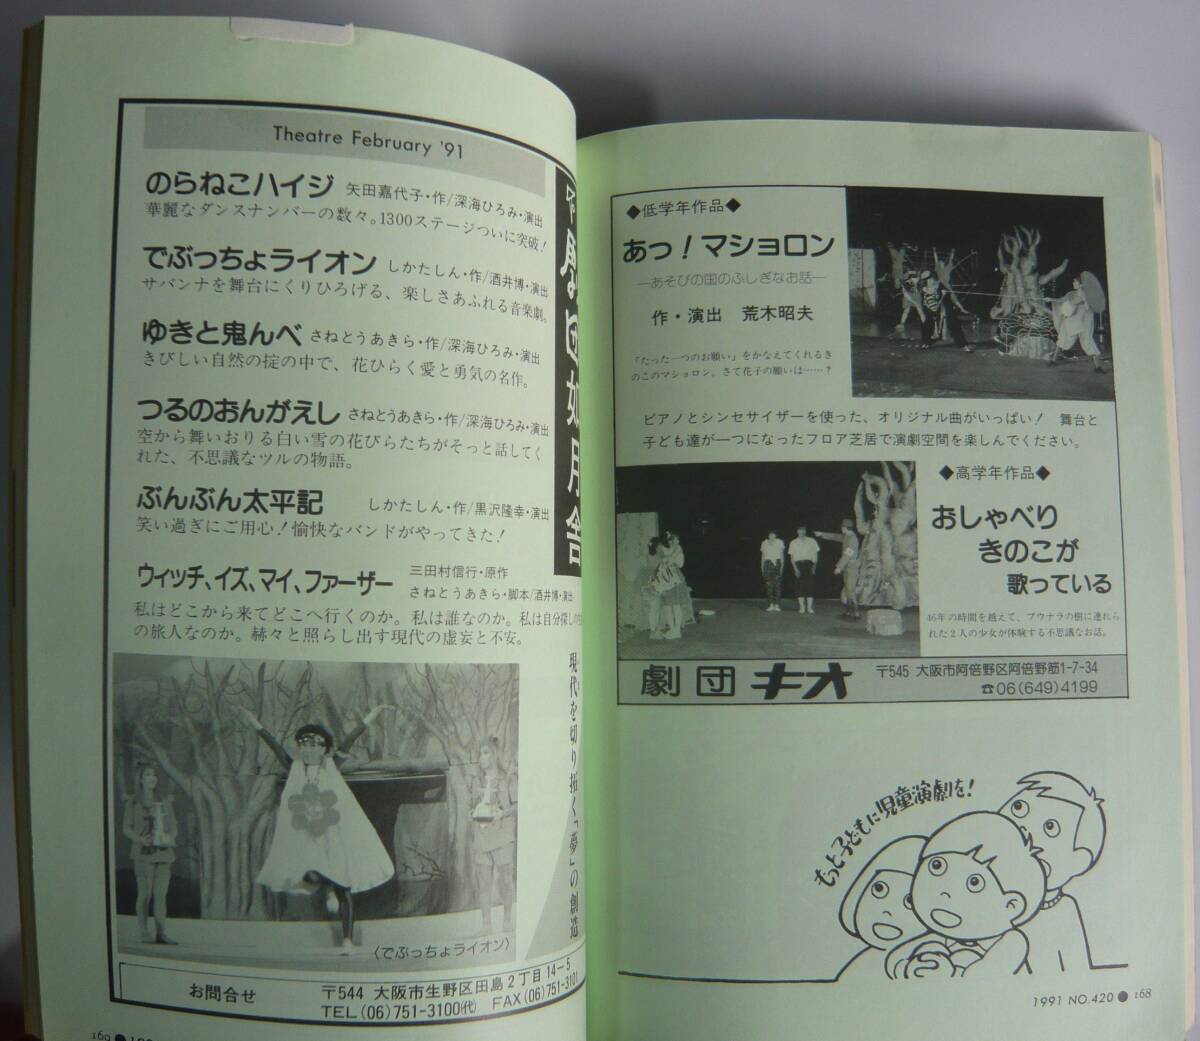 Theatre February '91
のらねこハイジ 矢田嘉代子・作/深海ひろみ・演出
華麗なダンスナンバーの数々。1300ステージついに突破!
でぶっちょライオン しかたしん・作/酒井博・演出
サバンナを舞台にくりひろげる、楽しさあふれる音楽劇。
ゆきと鬼んべ さねとうあきら・作/深海ひろみ・演出
きびしい自然の掟の中で、花ひらく愛と勇気の名作。
つるのおんがえし さねとうあきら・作/深海ひろみ・演出
空から舞いおりる白い雪の花びらたちがそっと話してく
れた、不思議なツルの物語。
ぶんぶん太平記 しかたしん・作/黒沢隆幸・演出
笑い過ぎにご用心!愉快なバンドがやってきた!
ウィッチ、イズ、マイ、ファーザー 三田村信行・原作
さねとうあきら・脚本/酒井博・演出
私はどこから来てどこへ行くのか。私は誰なのか。私は自分探しの
の旅人なのか。赫々と照らし出す現代の虚妄と不安。
劇団如月舎
現代を切り拓く「夢」の創造
〈でぶっちょライオン〉
お問合せ 〒544 大阪市生野区田島2丁目14-5
TEL(06)751-3100(代) FAX(06)751-3101
169
◆低学年作品◆
あっ!マショロン
―あそびの国のふしぎなお話―
作・演出 荒木昭夫
「たった一つのお願い」をかなえてくれるき
のこのマショロン。さて花子の願いは……?
ピアノとシンセサイザーを使った、オリジナル曲がいっぱい! 舞台と
子ども達が一つになったフロア芝居で演劇空間を楽しんでください。
◆高学年作品◆
おしゃべり
きのこが
歌っている
46年の時間を越えて、ブウナラの樹に連れら
れた2人の少女が体験する不思議なお話。
劇団キオ 〒545 大阪市阿倍野区阿倍野筋1-7-34
☎06(649)4199
もっと子どもに児童演劇を!
1991 NO.420 ● 168